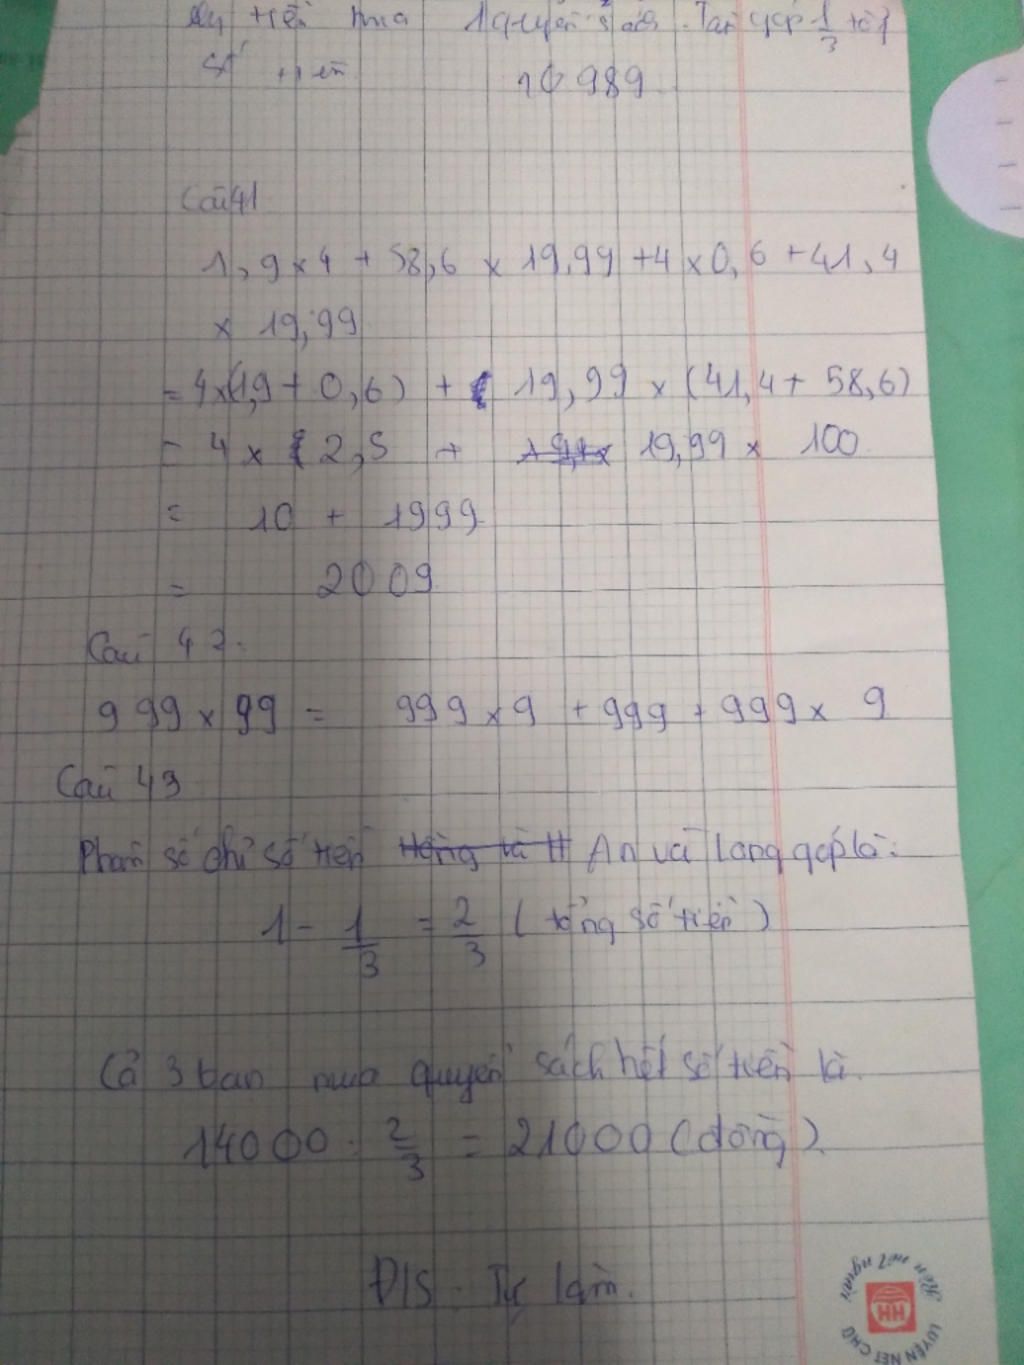 tiền mua 1 quyển sách. Tân góp 1/3 tổng
số tiền
10 989
Câu 41
1,9 x 4 + 58,6 x 19,99 + 4 x 0,6 + 41,4
x 19,99
= 4 x (1,9 + 0,6) + 19,99 x (41,4 + 58,6)
= 4 x 2,5 + 19,99 x 100
= 10 + 1999
= 2009
Câu 42.
999 x 99 = 999 x 9 + 999 + 999 x 9
Câu 43
Phân số chỉ số tiền An và Long góp là:
1 - 1/3 = 2/3 (tổng số tiền)
Cả 3 bạn mua quyển sách hết số tiền là.
14000 : 2/3 = 21000 (đồng).
Đ/S. Tự làm.
Rèn nét người
HH
LUYỆN NÉT CHỮ